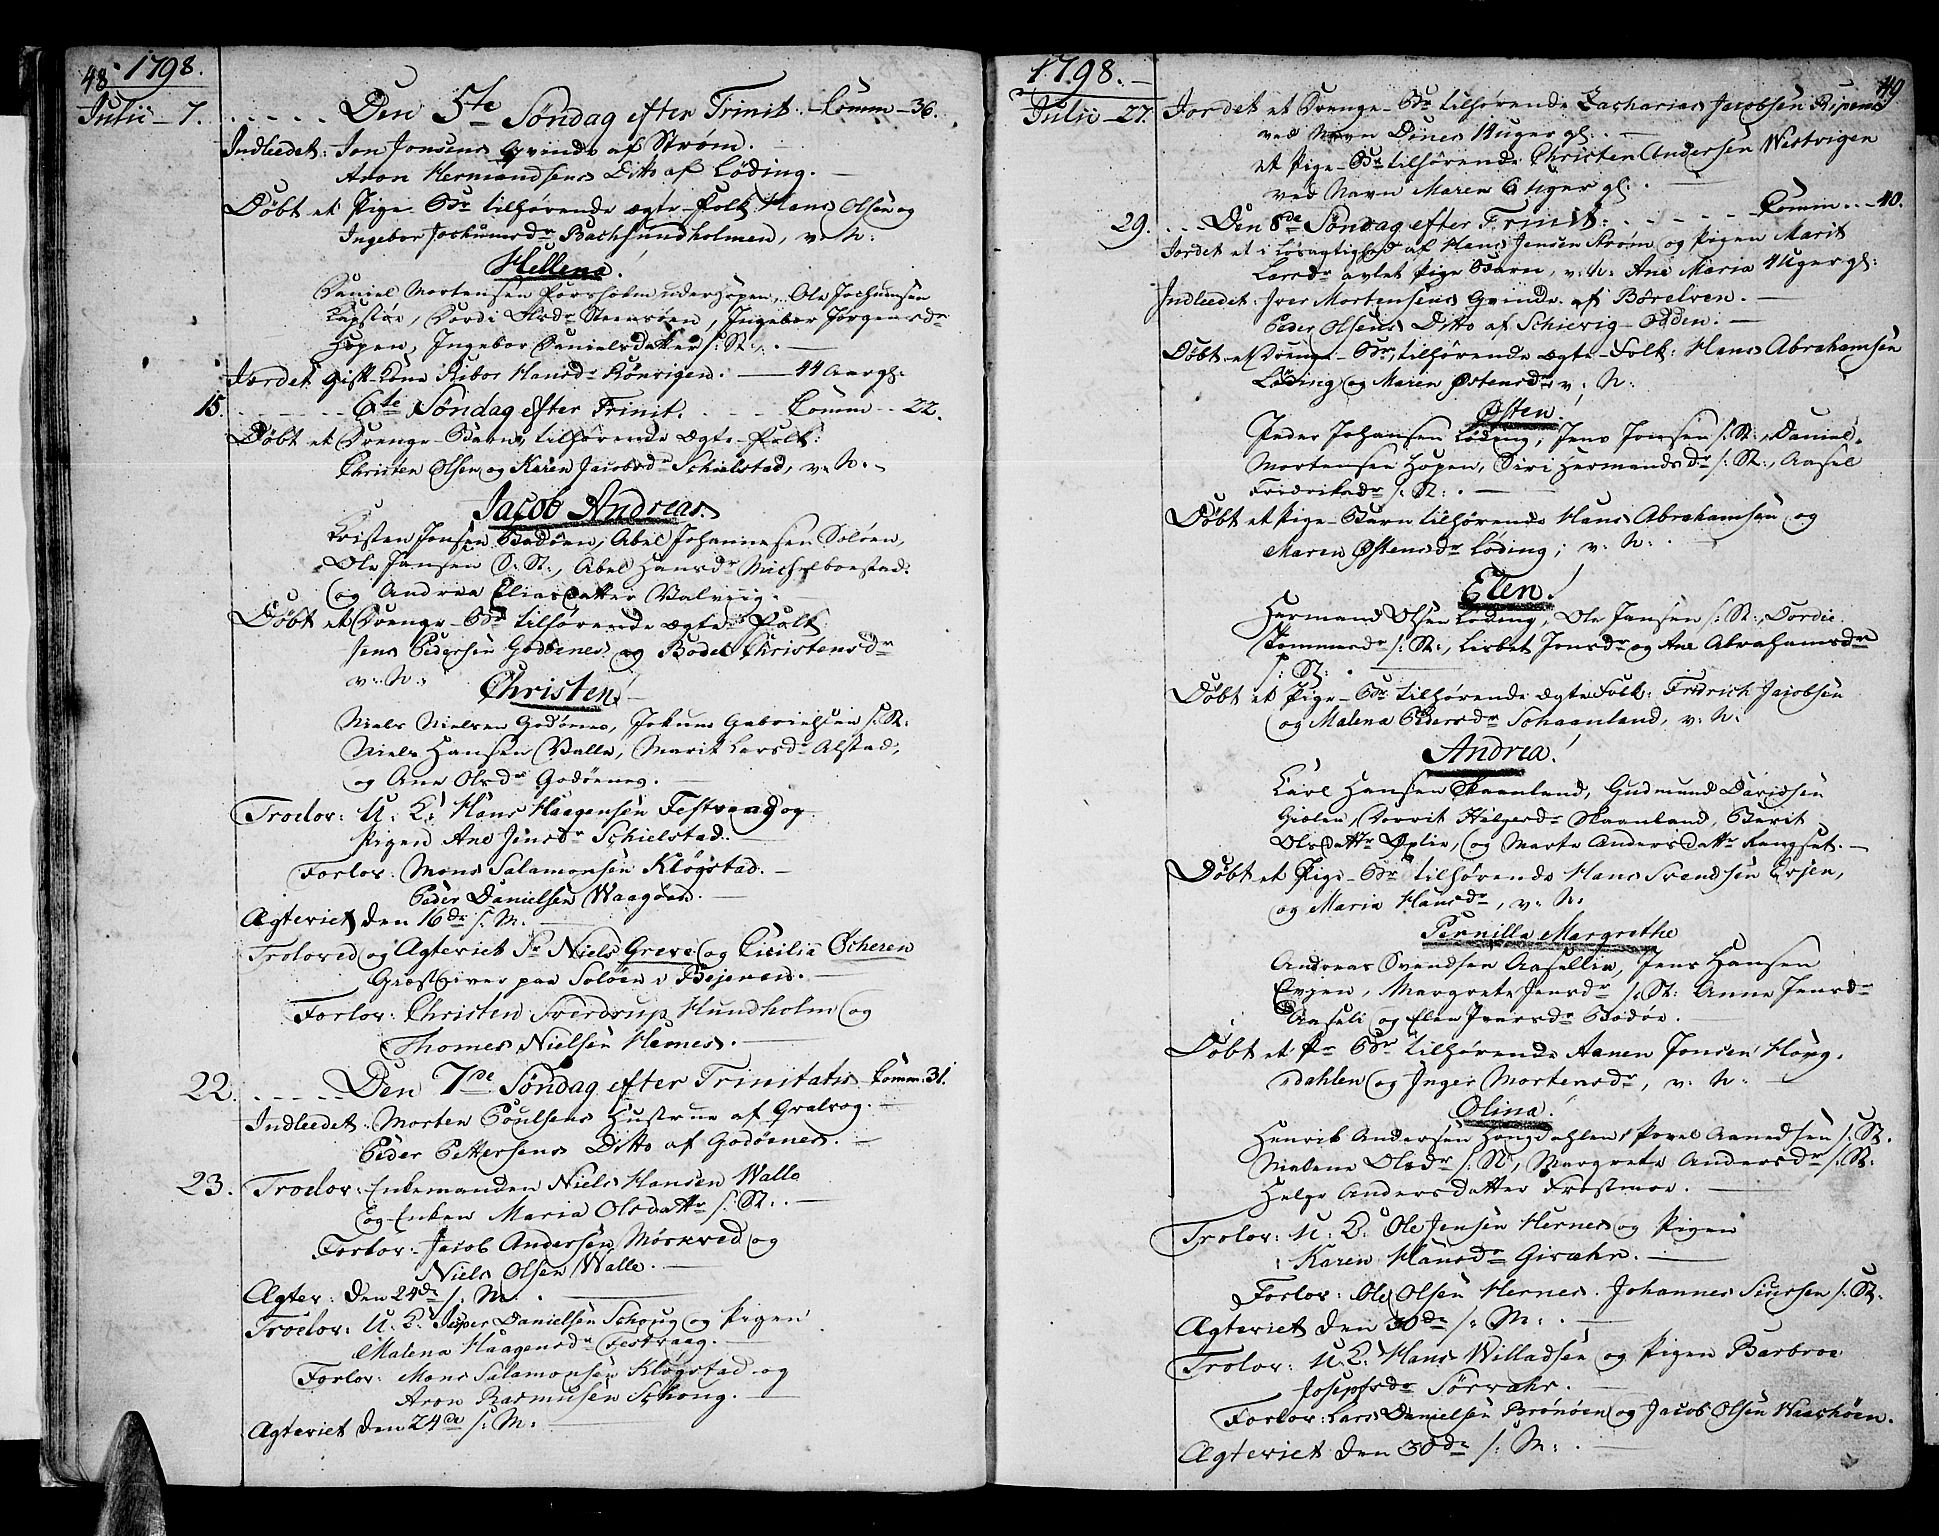 48. 1798.
Julii 7. Den 5te Søndag efter Trinit. Comm 36.
Indleedet: Jon Jonsens Qvinde af Strøm.
Aron Hermandsens Ditto af Løding.
Døbt et Pige Br tilhørende ægte Folk Hans Olsen og
Ingebor Jochumsdr Bachsundholmen, v: N:
Hellena!
Daniel Mortensen Hopen, Ole Jochumsen
Dordi Olsdr Ingebor Jørgensdr
Hopen, Ingebor Danielsdatter s: St:
Jordet gift Kone Ribor Hansdr Rønvigen. 44 Aar gl:
15. 6te Søndag efter Trinit. Comm 22.
Døbt et Drenge Barn tilhørende ægte Folk:
Christen Olsen og Karen Jacobsdr Schielstad, v: N:
Jacob Andreas.
Christen Jensen Bodøen, Abel Johannesen Soløen,
Ole Jansen S: St:, Abel Hansdr
og Andrea Eliasdatter Valvig.
Døbt et Drenge Br tilhørende ægte Folk
Jens Pedersen Godønes og Bodel Christensdr
v: N:
Christen!
Niels Nielsen Godønes, Jokum Gabrielsen s: St:
Niels Hansen Valle, Marit Larsdr Alstad,
og Ane Olsdr Godøenes.
Troelov: U. K: Hans Haagensen Festvaag og
Pigen Ane Jensdr Schielstad.
Forlov: Mons Salamonsen Kløgstad.
Peder Danielsen Waagøen.
Ægteviet den 16de s: M:
Troloved og Ægteviet Sr Niels Greve og Cicilia Ocheren
Giæstgiver paa Soløen i Bejeren.
Forlov: Christen Sverdrup Hundholm og
Thomes Nielsen Hernes.
22. Den 7de Søndag efter Trinitatis Comm: 31.
Indleedet: Morten Poulsens Hustrue af Qvalvog.
Peder Pettersens Ditto af Godøenes.
23. Troelov: Enkemanden Niels Hansen Walle
og Enken Maria Olsdattr s: St:
Forlov: Jacob Andersen Mørkved og
Niels Olsen Walle.
Ægtev: den 24de s: M:
Troelov: U. K: Jesper Danielsen Schoug og Pigen
Malena Haagensdr Festvaag.
Forlov: Mons Salamonsen Kløgstad og
Aron Rasmusen Schoug.
Ægteviet den 24de s: M:
1798. 49
Julii 27. Jordet et Drenge Br tilhørende Zacharias Jacobsen
ved Navn Dines 14 uger gl:
et Pige Br tilhørende Christen Andersen Westvigen
ved Navn Maren 6 uger gl:
29. Den 8de Søndag efter Trinit: Comm 40.
Jordet et i Løsagtighed af Hans Jensen Strøm og Pigen Marit
Larsdr avlet Pige Barn, v: N: Ane Maria 4 Uger gl:
Indleedet: Iver Mortensens Qvinde af Børelven.
Peder Olsens Ditto af Schievig Odden.
Døbt et Drenge Br, tilhørende ægte Folk: Hans Abrahamsen
Løding og Maren Østensdr v: N:
Østen!
Peder Johansen Løding, Jens Jonsen s: St:, Daniel
Mortensen Hopen, Siri Hermandsdr s: St:, Aasel
Fridriksdr s: St:
Døbt et Pige Barn tilhørende Hans Abrahamsen og
Maren Østensdr Løding; v: N:
Elen!
Hermand Olsen Løding, Ole Jansen s: St:, Dordie
Tommesdr s: St:, Lisbet Jonsdr og Ane Abrahamsdr
s: St:
Døbt et Pige Br tilhørende ægte Folk: Fridrich Jacobsen
og Malena Pedersdr Schaanland, v: N:
Andrea!
Carl Hansen Skaanland, Gudmund Davidsen
Dorrit Helgesdr Skaanland, Berit
Olsdattr Øxlie, og Marta Andersdattr Rangset.
Døbt et Pige Br tilhørende Hans Svendsen Evjen,
og Maria Hansdr, v: N:
Pernilla Margrethe
Andreas Svendsen Aasellie, Jens Hansen
Evjen, Margrete Jensdr s: St: Anne Jensdr
Aaseli og Elen Iversdr Bodøe.
Døbt et P Br tilhørende Aanen Jonsen Houg-
sdahlen og Inger Mortensdr, v: N:
Olina!
Henrik Andersen Hougdahlen, Povel Aanedsen s: St:
Malene Olsdr s: St:, Margrete Andersdr s: St:
Helge Andersdatter Frostmoe.
Trolov: U. K: Ole Jensen Hernes og Pigen
Karen Hansdr Givahr.
Forlov: Ole Olsen Hernes. Johannes Siursen s: St:
Ægteviet den 30de s: M:
Trolov: U. K: Hans Willadsen og Pigen Barbroe
Josephsdr Sørvahr.
Forlov: Lars Danielsen Brønøen og Jacob Olsen Waaghøen.
Ægteviet den 30de s: M: